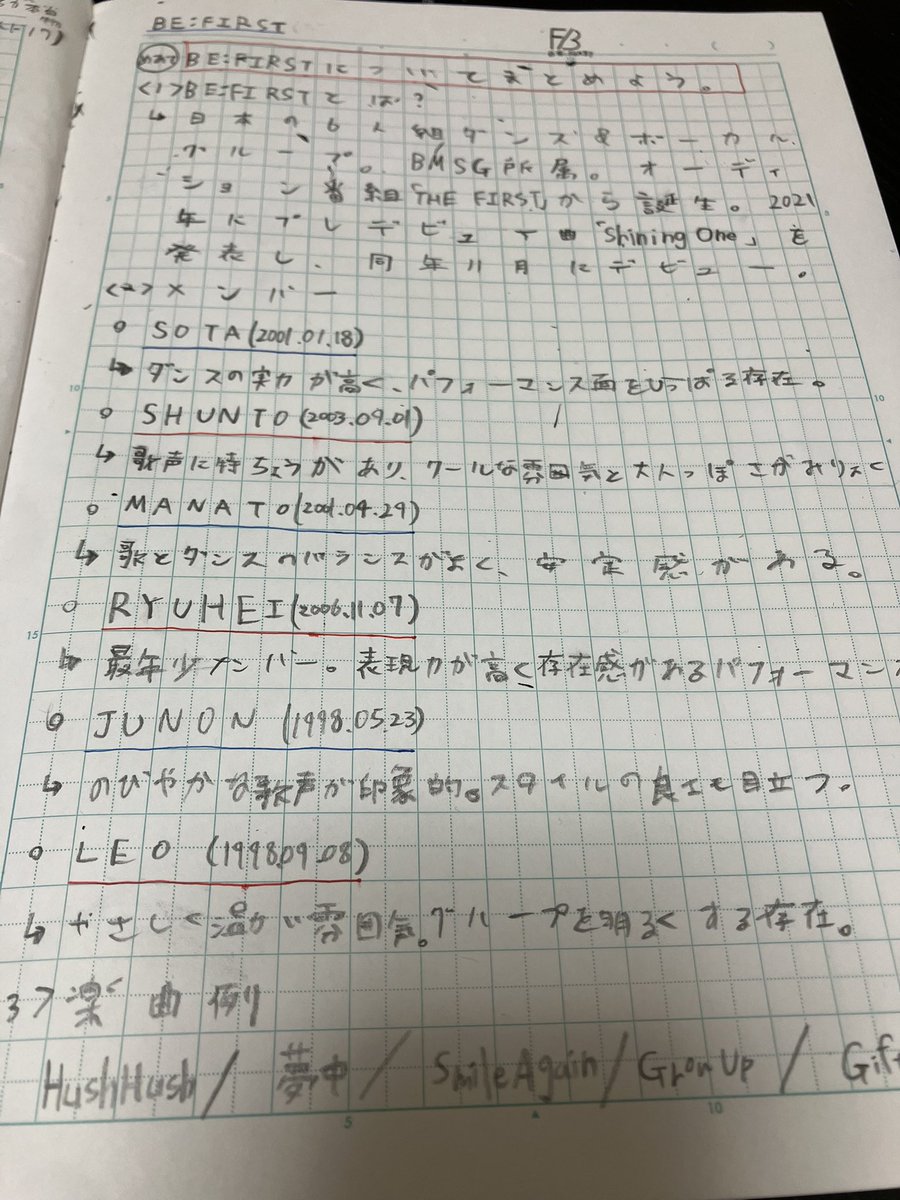 BE:FIRST
F/B
めあて BE:FIRSTについてまとめよう。
<1>BE:FIRSTとは?
↳日本の6人組ダンス&ボーカル
グループ。BMSG所属。オーディ
ション番組「THE FIRST」から誕生。2021
年にプレデビュー曲「Shining One」を
発表し、同年11月にデビュー。
<2>メンバー
○ SOTA(2001.01.18)
↳ダンスの実力が高く、パフォーマンス面をひっぱる存在。
○ SHUNTO(2003.09.01)
↳歌声に特ちょうがあり、クールな雰囲気と大人っぽさがみりょく
○ MANATO(2001.04.29)
↳歌とダンスのバランスがよく、安定感がある。
○ RYUHEI(2006.11.07)
↳最年少メンバー。表現力が高く存在感があるパフォーマンス
○ JUNON (1998.05.23)
↳のびやかな歌声が印象的。スタイルの良さも目立つ。
○ LEO (1998.09.08)
↳やさしく温かい雰囲気。グループを明るくする存在。
3>楽曲例
HushHush/夢中/SmileAgain/GrowUp/Gift